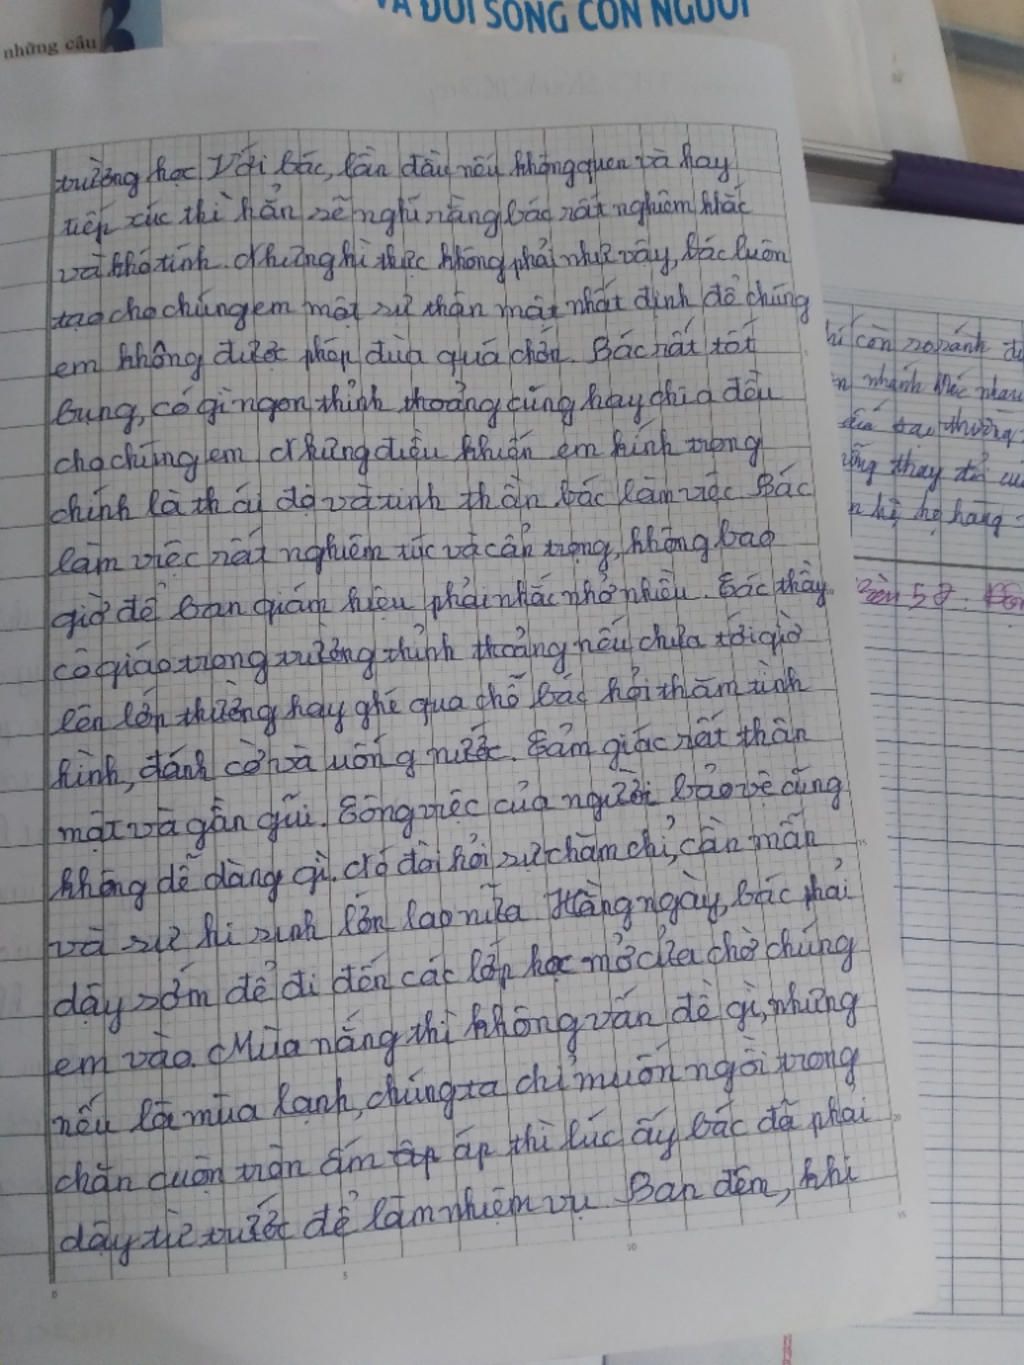 những câu
VÀ ĐỜI SỐNG CON NGƯỜI
trường học Với bác, lần đầu nếu không quen và hay
tiếp xúc thì hẳn sẽ nghĩ rằng bác rất nghiêm khắc
và khó tính. Nhưng kì thực không phải như vậy, bác luôn
tạo cho chúng em một sự thân mật nhất định để chúng
em không được phép đùa quá chớn. Bác rất tốt
bụng, có gì ngon thỉnh thoảng cũng hay chia đều
cho chúng em. Nhưng điều khiến em kính trọng
chính là thái độ và tinh thần bác làm việc. Bác
làm việc rất nghiêm túc và cẩn trọng, không bao
giờ để ban quám hiệu phải nhắc nhở nhiều. Các thầy
cô giáo trong trường thỉnh thoảng nếu chưa tới giờ
lên lớp thường hay ghé qua chỗ bác hỏi thăm tình
hình, đánh cờ và uống nước. Cảm giác rất thân
mật và gần gũi. Công việc của người bảo vệ cũng
không dễ dàng gì. Nó đòi hỏi sự chăm chỉ, cần mẫn
và sự hi sinh lớn lao nữa. Hằng ngày, bác phải
dậy sớm để đi đến các lớp học mở cửa chờ chúng
em vào. Mùa nắng thì không vấn đề gì, nhưng
nếu là mùa lạnh, chúng ta chỉ muốn ngồi trong
chăn cuộn tròn ấm áp thì lúc ấy bác đã phải
dậy từ trước để làm nhiệm vụ. Ban đêm, khi
hí còn so sánh
nhánh khác nhau
thường
thay đổi
họ hàng
58
5
10
15